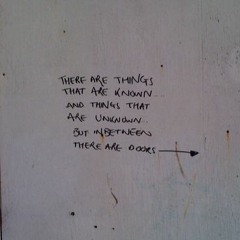 THERE ARE THINGS
THAT ARE KNOWN...
AND THINGS THAT
ARE UNKNOWN...
BUT INBETWEEN
THERE ARE DOORS